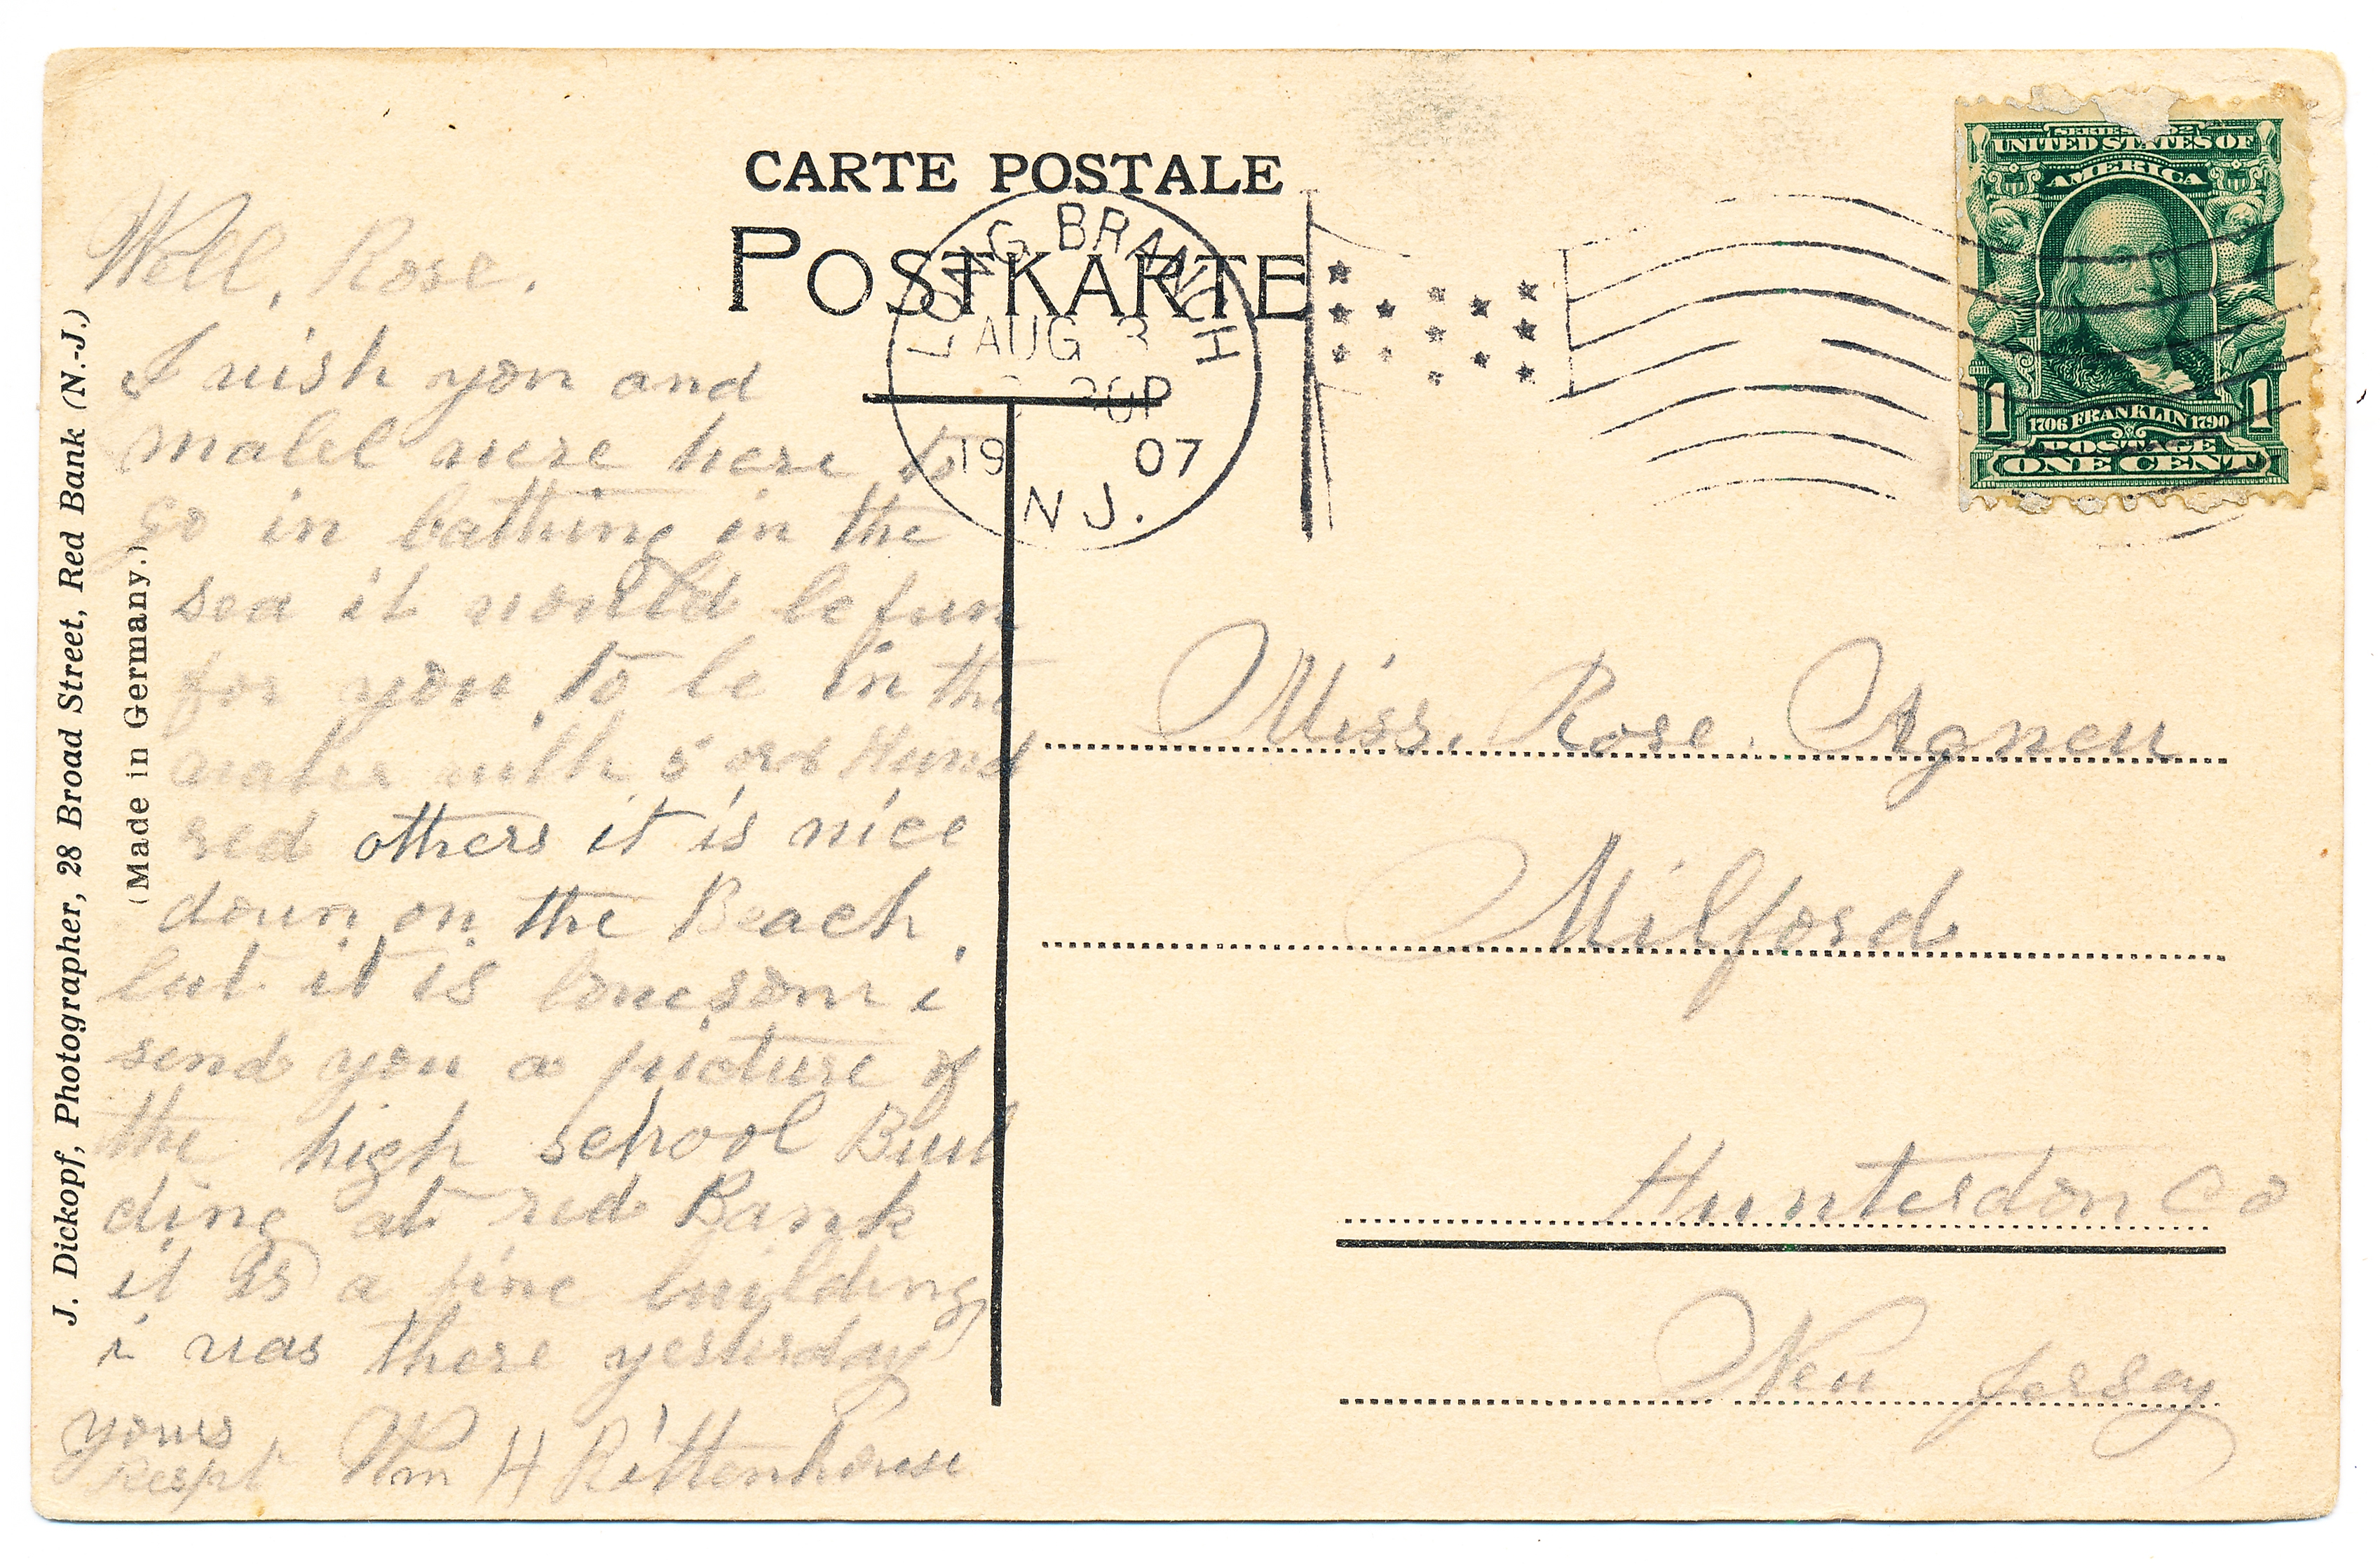 CARTE POSTALE
POSTKARTE
LONG BRANCH
AUG 3
30P
1907
N.J.
SERIES 1902
UNITED STATES OF
AMERICA
1706 FRANKLIN 1790
1 1
POSTAGE
ONE CENT
J. Dickopf, Photographer, 28 Broad Street, Red Bank (N.-J.)
(Made in Germany.)
Well, Rose.
I wish you and
mabel were here to
go in bathing in the
sea it would be fun
for you to be in the
water with 5 or 6 Hund
red others it is nice
down on the Beach.
but it is lonesome i
send you a picture of
the high school Buil
ding at red Bank
it is a fine building
i was there yesterday
yours
Respt Wm H Rittenhouse
Miss. Rose. Agnew
Milford
Hunterdon Co
New Jersey